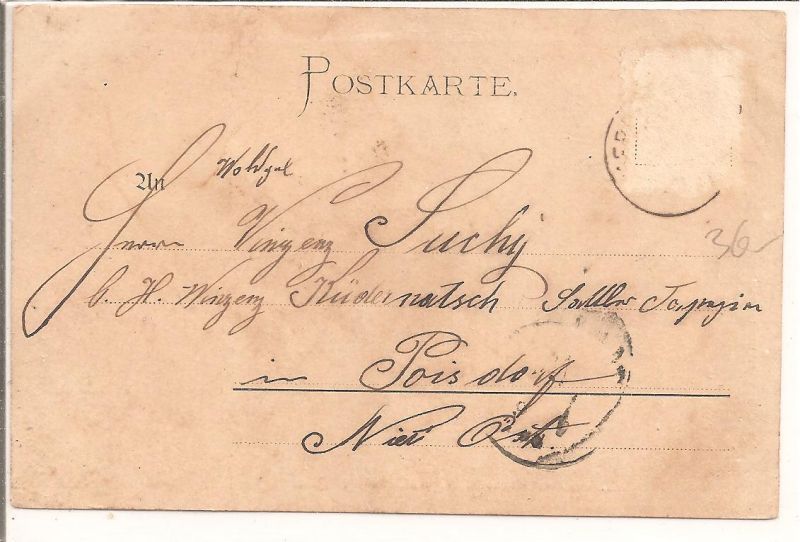 POSTKARTE.
An Wohlgel
Herrn Vinzenz Suchy
b. H. Winzenz Küdernatsch Sattler Tapezirer
in Poisdorf
Nied Öst.
36